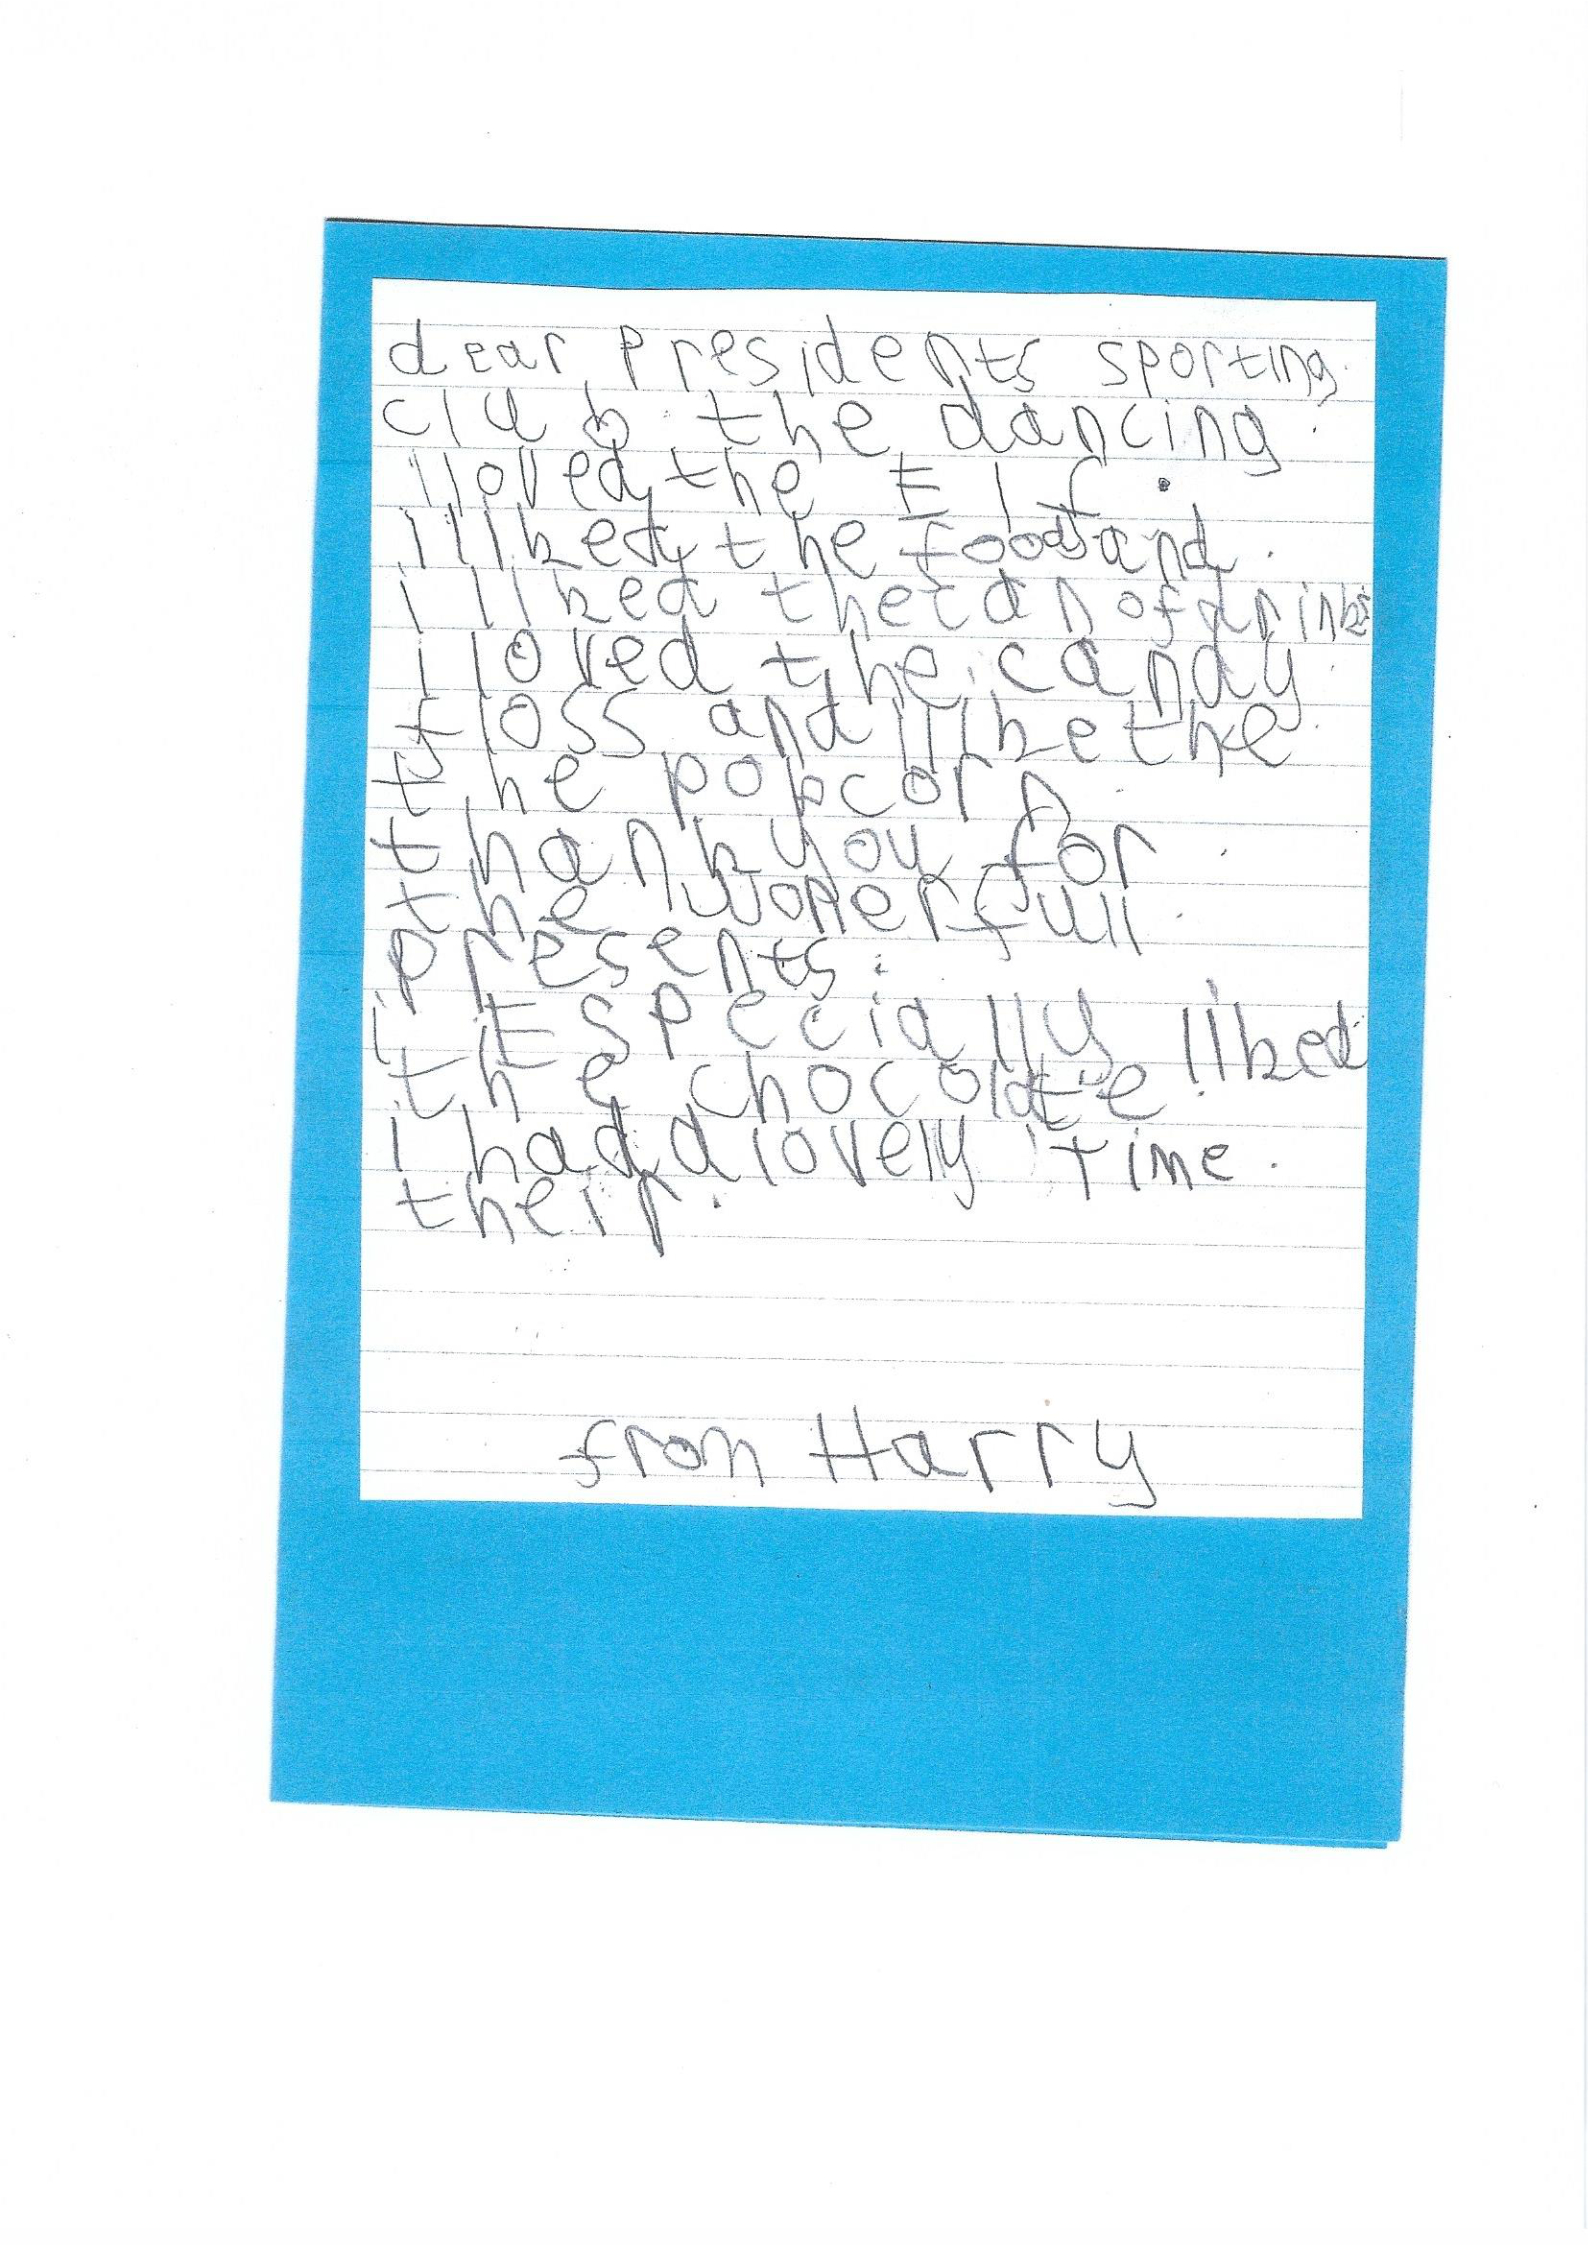 dear presidents sporting.
club. the dancing.
i loved the Elf.
i liked the food and.
i liked the can of drinks
i loved the candy
floss and i like the
the popcorn
thank you for
the wonerfull
presents.
i Especially liked
the chocolate.
i had a lovely time.
their.
from Harry